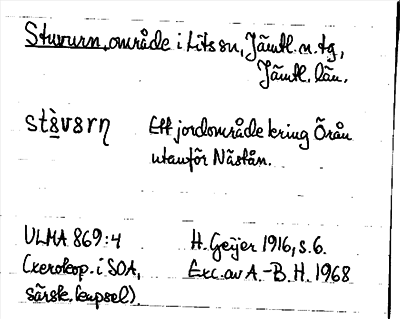 Stuvurn, område i Lits sn, Jämtl. n. tg,
Jämtl. län.
Ett jordområde kring Örån
utanför Nästån.
ULMA 869:4
H. Geijer 1916, s. 6.
(xerokop. i SOA,
Exc. av A.-B. H. 1968
särsk. kapsel)